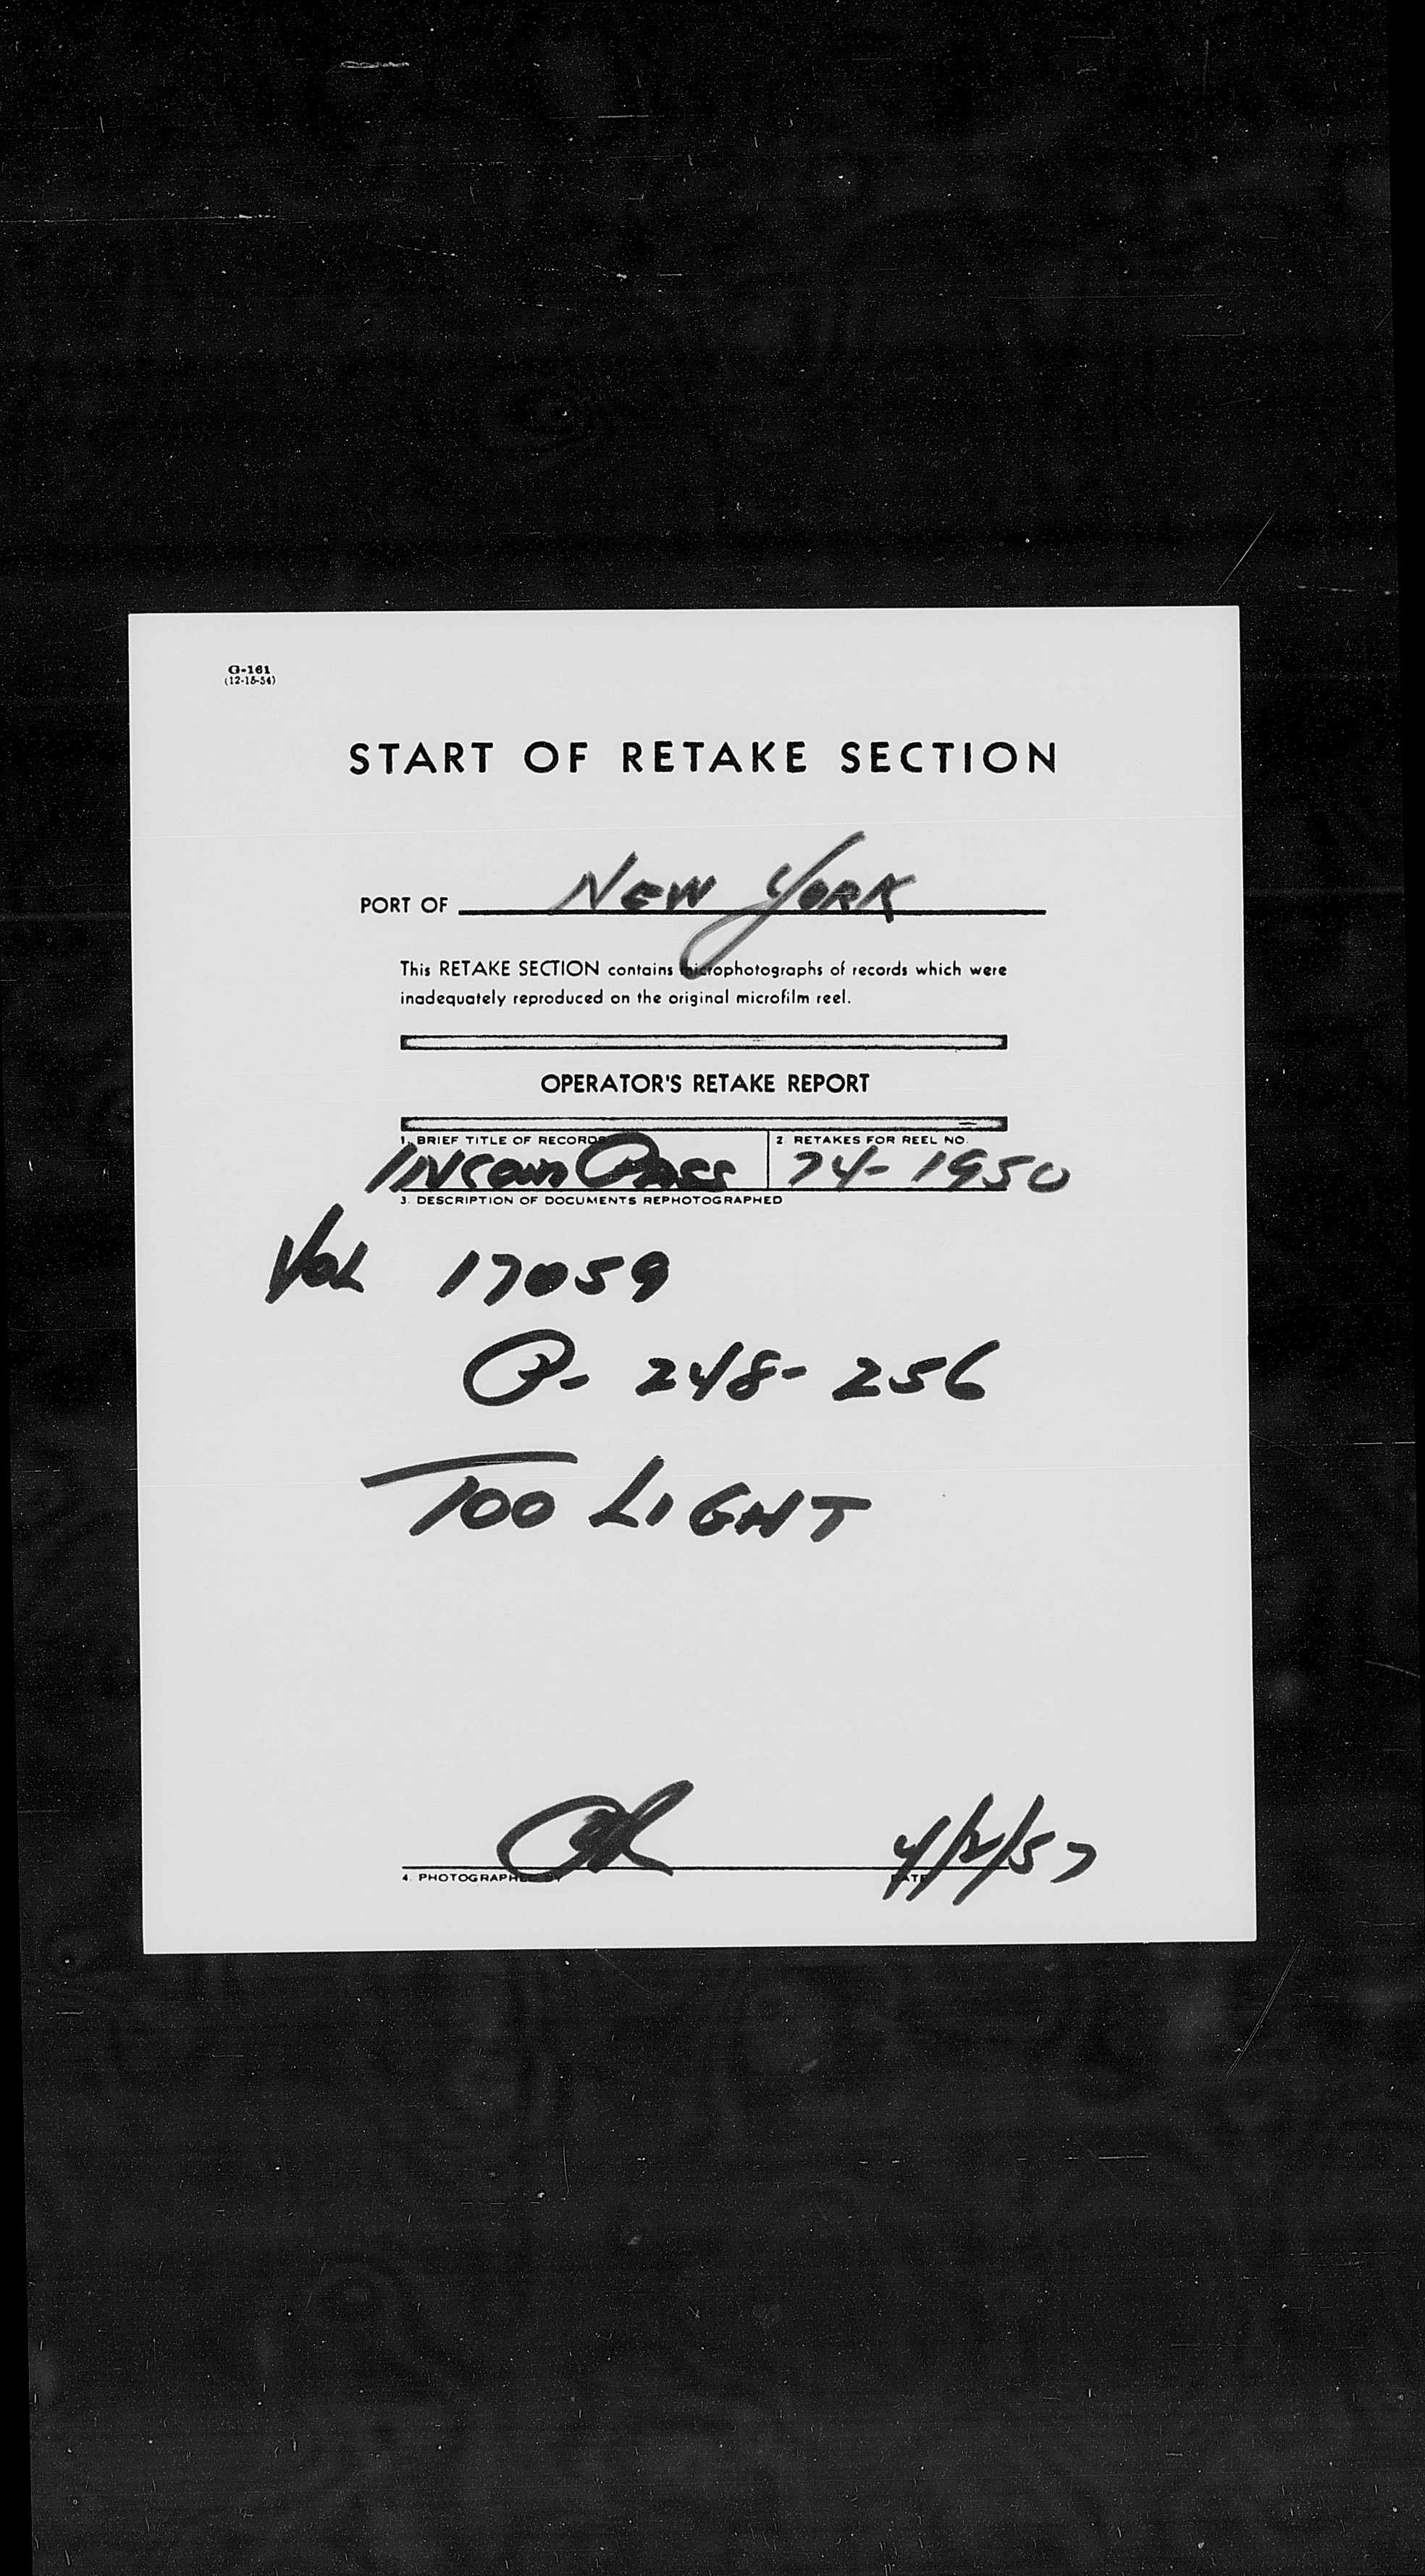 G-161
(12-15-54)
START OF RETAKE SECTION
PORT OF NEW YORK
This RETAKE SECTION contains microphotographs of records which were
inadequately reproduced on the original microfilm reel.
OPERATOR'S RETAKE REPORT
1. BRIEF TITLE OF RECORDS 2. RETAKES FOR REEL NO.
Pass 74-1950
3. DESCRIPTION OF DOCUMENTS REPHOTOGRAPHED
Vol 17059
P- 248-256
TOO LIGHT
4/2/57
4. PHOTOGRAPHED BY DATE